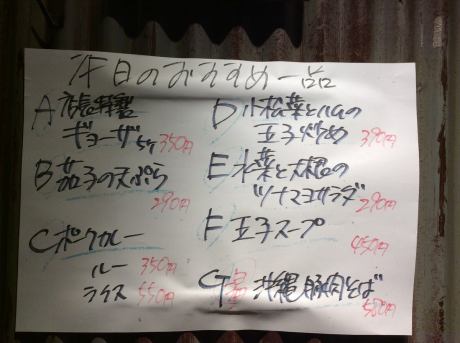 本日のおすすめ一品
A 店長特製
ギョーザ 5ケ 350円
B 茄子の天ぷら
290円
C ポークカレー
ルー 350円
ライス 550円
D 小松菜とハムの
玉子炒め 390円
E 水菜と大根の
ツナマヨサラダ 290円
F 玉子スープ
450円
G 沖縄豚肉そば
580円